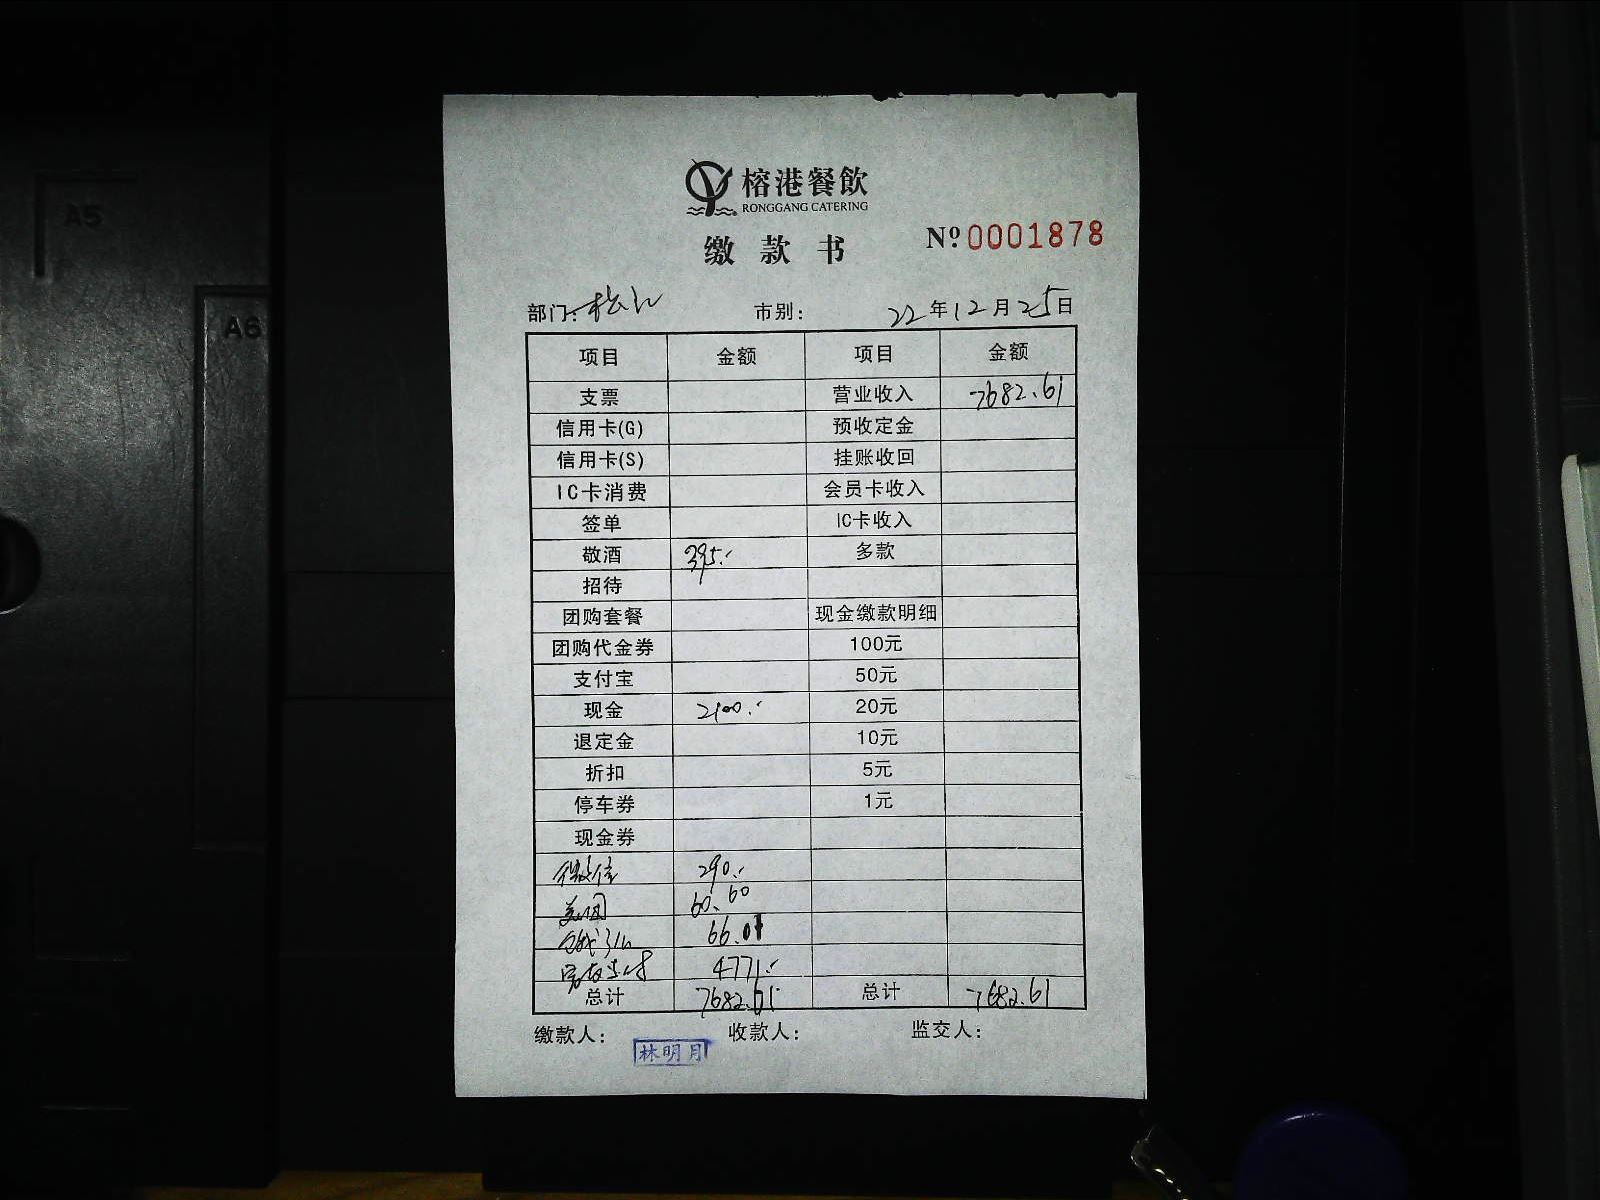 A5
A6
榕港餐飲
RONGGANG CATERING
缴款书
№ 0001878
部门: 松江 市别: 22年12月25日
项目 金额 项目 金额
支票 营业收入 7682.61
信用卡(G) 预收定金
信用卡(S) 挂账收回
IC卡消费 会员卡收入
签单 IC卡收入
敬酒 395.- 多款
招待
团购套餐 现金缴款明细
团购代金券 100元
支付宝 50元
现金 2100.- 20元
退定金 10元
折扣 5元
停车券 1元
现金券
微信 290.-
美团 60.60
66.01
4771.-
总计 7682.61 总计 7682.61
缴款人: 林明月 收款人: 监交人: